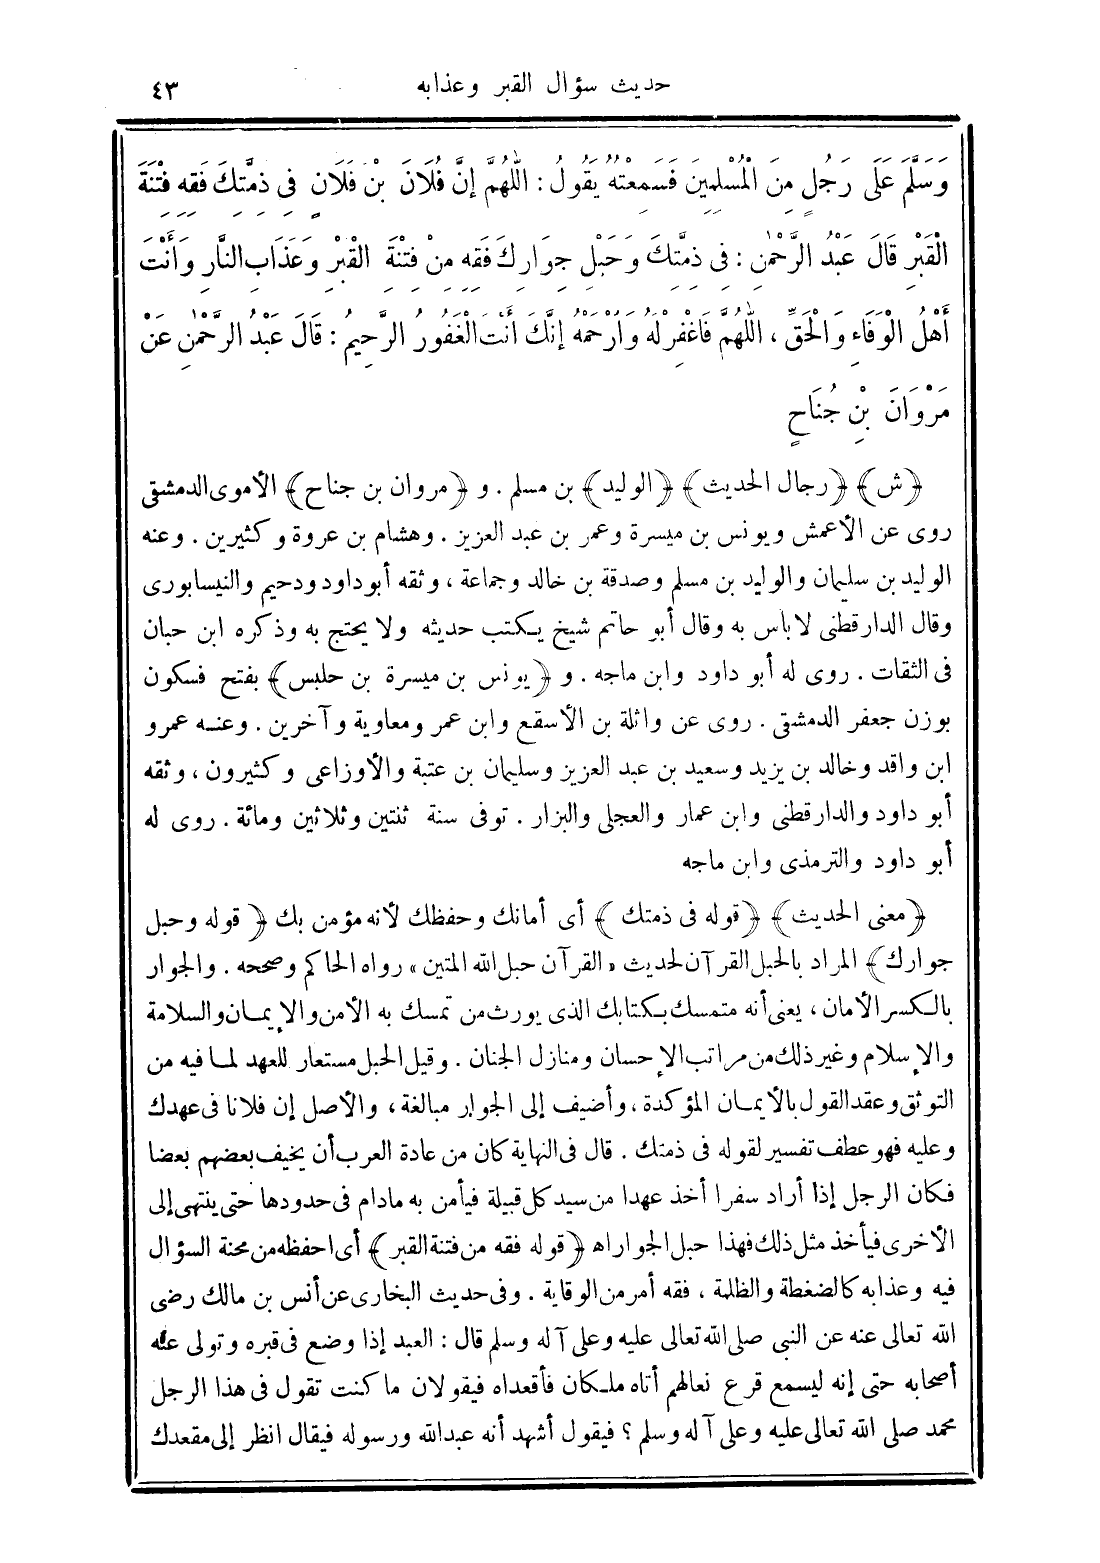 حديث سؤال القبر وعذابه ٤٣
وَسَلَّمَ عَلَى رَجُلٍ مِنَ الْمُسْلِمِينَ فَسَمِعْتُهُ يَقُولُ : اللّٰهُمَّ إِنَّ فُلَانَ بْنَ فُلَانٍ فِى ذِمَّتِكَ فَقِهِ فِتْنَةَ
الْقَبْرِ قَالَ عَبْدُ الرَّحْمٰنِ : فِى ذِمَّتِكَ وَحَبْلِ جِوَارِكَ فَقِهِ مِنْ فِتْنَةِ الْقَبْرِ وَعَذَابِ النَّارِ وَأَنْتَ
أَهْلُ الْوَفَاءِ وَالْحَقِّ ، اللّٰهُمَّ فَاغْفِرْ لَهُ وَارْحَمْهُ إِنَّكَ أَنْتَ الْغَفُورُ الرَّحِيمُ : قَالَ عَبْدُ الرَّحْمٰنِ عَنْ
مَرْوَانَ بْنِ جُنَاحٍ
﴿ش﴾ ﴿رجال الحديث﴾ ﴿الوليد﴾ بن مسلم . و ﴿مروان بن جناح﴾ الأموى الدمشقى
روى عن الأعمش ويونس بن ميسرة وعمر بن عبد العزيز . وهشام بن عروة وكثيرين . وعنه
الوليد بن سليمان والوليد بن مسلم وصدقة بن خالد وجماعة ، وثقه أبوداود ودحيم والنيسابورى
وقال الدارقطنى لاباس به وقال أبو حاتم شيخ يكتب حديثه ولا يحتج به وذكره ابن حبان
فى الثقات . روى له أبو داود وابن ماجه . و ﴿يونس بن ميسرة بن حلبس﴾ بفتح فسكون
بوزن جعفر الدمشقى . روى عن واثلة بن الأسقع وابن عمر ومعاوية وآخرين . وعنه عمرو
ابن واقد وخالد بن يزيد وسعيد بن عبد العزيز وسليمان بن عتبة والأوزاعى وكثيرون ، وثقه
أبو داود والدارقطنى وابن عمار والعجلى والبزار . توفى سنة ثنتين وثلاثين ومائة . روى له
أبو داود والترمذى وابن ماجه
﴿معنى الحديث﴾ ﴿قوله فى ذمتك﴾ أى أمانك وحفظك لأنه مؤمن بك ﴿قوله وحبل
جوارك﴾ المراد بالحبل القرآن لحديث «القرآن حبل الله المتين» رواه الحاكم وصححه . والجوار
بالكسر الأمان ، يعنى أنه متمسك بكتابك الذى يورث من تمسك به الأمن والإيمان والسلامة
والإسلام وغير ذلك من مراتب الإحسان ومنازل الجنان . وقيل الحبل مستعار للعهد لما فيه من
التوثق وعقد القول بالأيمان المؤكدة ، وأضيف إلى الجوار مبالغة ، والأصل إن فلانا فى عهدك
وعليه فهو عطف تفسير لقوله فى ذمتك . قال فى النهاية كان من عادة العرب أن يخيف بعضهم بعضا
فكان الرجل إذا أراد سفرا أخذ عهدا من سيد كل قبيلة فيأمن به مادام فى حدودها حتى ينتهى إلى
الأخرى فيأخذ مثل ذلك فهذا حبل الجوار اه ﴿قوله فقه من فتنة القبر﴾ أى احفظه من محنة السؤال
فيه وعذابه كالضغطة والظلمة ، فقه أمر من الوقاية . وفى حديث البخارى عن أنس بن مالك رضى
الله تعالى عنه عن النبى صلى الله تعالى عليه وعلى آله وسلم قال : العبد إذا وضع فى قبره وتولى عنه
أصحابه حتى إنه ليسمع قرع نعالهم أتاه ملكان فأقعداه فيقولان ما كنت تقول فى هذا الرجل
محمد صلى الله تعالى عليه وعلى آله وسلم ؟ فيقول أشهد أنه عبدالله ورسوله فيقال انظر إلى مقعدك